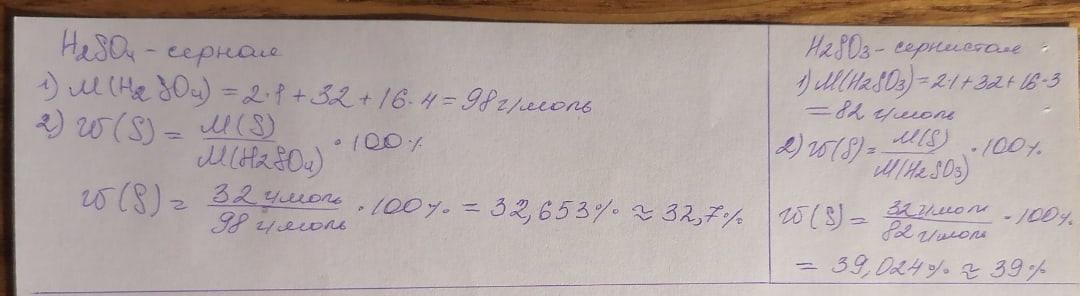 H2SO4 - серная
1) M(H2SO4) = 2·1 + 32 + 16·4 = 98 г/моль
2) w(S) = M(S) / M(H2SO4) · 100%
w(S) = 32 г/моль / 98 г/моль · 100% = 32,653% ≈ 32,7%
H2SO3 - сернистая
1) M(H2SO3) = 2·1 + 32 + 16·3
= 82 г/моль
2) w(S) = M(S) / M(H2SO3) · 100%
w(S) = 32 г/моль / 82 г/моль · 100%
= 39,024% ≈ 39%